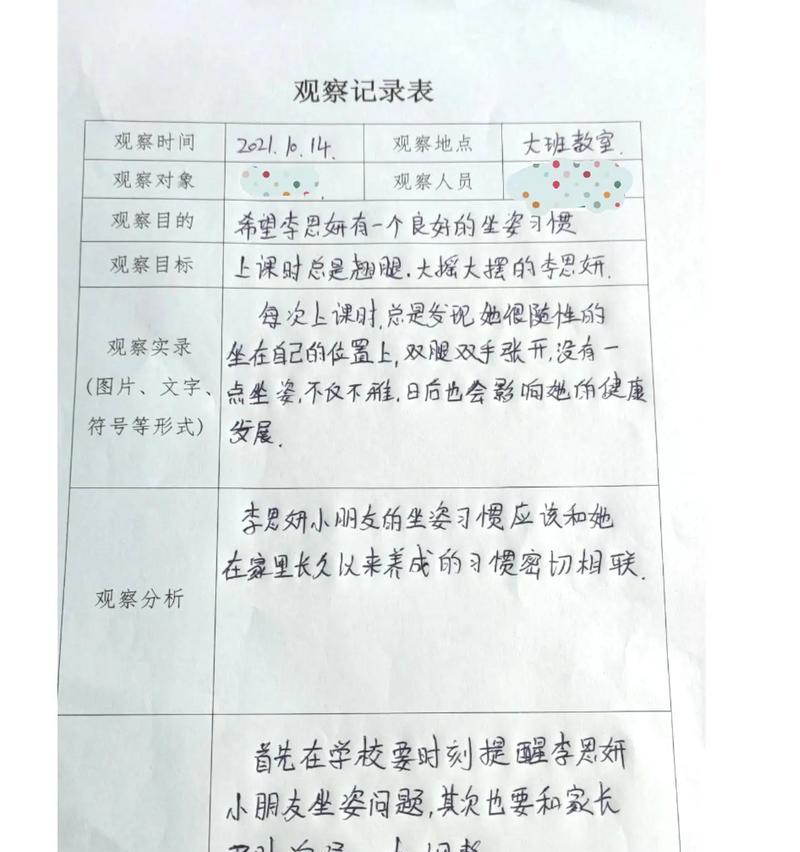 观察记录表
观察时间 2021.10.14. 观察地点 大班教室.
观察对象 观察人员
观察目的 希望李思妍有一个良好的坐姿习惯
观察目标 上课时总是翘腿.大摇大摆的李思妍.
观察实录
(图片、文字、
符号等形式)
每次上课时,总是发现她很随性的
坐在自己的位置上,双腿双手张开,没有一
点坐姿,不仅不雅.日后也会影响她的健康
发展.
观察分析
李思妍小朋友的坐姿习惯应该和她
在家里长久以来养成的习惯密切相联.
首先在学校要时刻提醒李思妍
小朋友坐姿问题,其次也要和家长